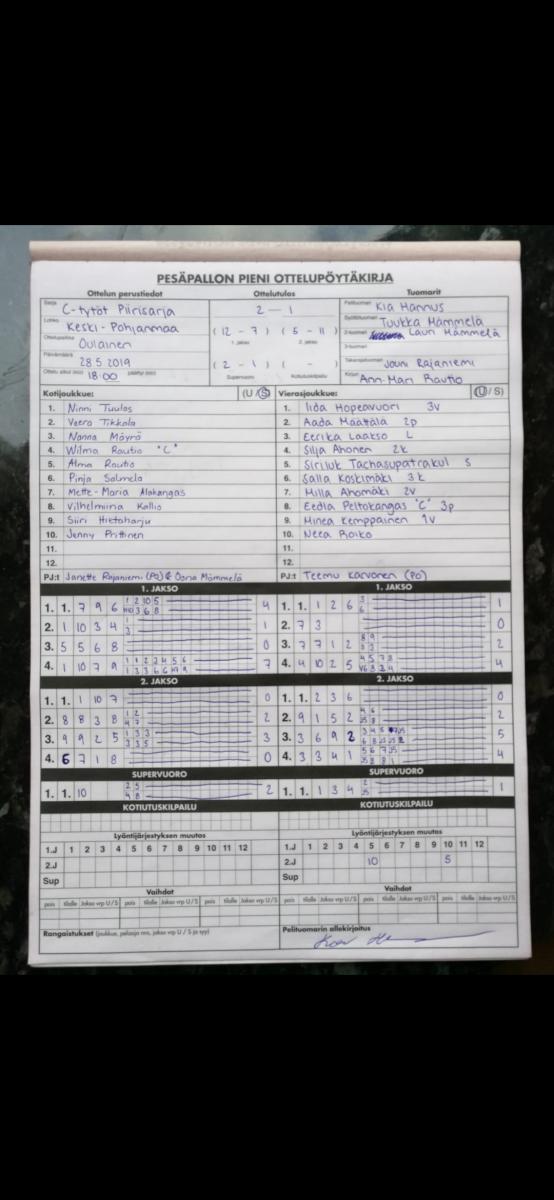 PESÄPALLON PIENI OTTELUPÖYTÄKIRJA
Ottelun perustiedot Ottelutulos Tuomarit
Sarja C-tytöt Piirisarja 2 — 1 Pelituomari Kia Hannus
Lohko Keski-Pohjanmaa (12 - 7) (5 - 11) Syöttötuomari Tuukka Mämmelä
Ottelupaikka Oulainen 1. jakso 2. jakso 2-tuomari Lauri Mämmelä
3-tuomari
Päivämäärä 28.5 2019 (2 - 1) ( - ) Takarajatuomari Jouni Rajaniemi
Ottelu alkoi (klo) 18:00 päättyi (klo) Supervuoro Kotiutuskilpailu Kirjuri Ann-Mari Rautio
Kotijoukkue: (U / S) Vierasjoukkue: (U / S)
1. Ninni Tuulos 1. Iida Hopeavuori 3v
2. Veera Tikkala 2. Aada Määttälä 2p
3. Nanna Möyrä 3. Eerika Laakso L
4. Wilma Rautio "C" 4. Silja Ahonen 2k
5. Alma Rautio 5. Siriluk Tachasupatrakul S
6. Pinja Salmela 6. Salla Koskimäki 3k
7. Mette-Maria Alakangas 7. Milla Ahomäki 2v
8. Vilhelmiina Kallio 8. Eedla Peltokangas "C" 3p
9. Siiri Hirtoharju 9. Minea Kemppainen 1v
10. Jenny Prittinen 10. Neea Roiko
11. 11.
12. 12.
PJ:t Janette Rajaniemi (PJ) & Oona Mämmelä PJ:t Teemu Karvonen (PJ)
1. JAKSO 1. JAKSO
1. 1. 7 9 6 4 1. 1. 1 2 6 1
2. 1 10 3 4 1 2. 7 3 0
3. 5 5 6 8 0 3. 7 7 1 2 2
4. 1 10 7 9 7 4. 4 10 2 5 4
2. JAKSO 2. JAKSO
1. 1. 1 10 7 0 1. 1. 2 3 6 0
2. 8 8 3 8 2 2. 9 1 5 2 2
3. 9 9 2 5 3 3. 3 6 9 2 5
4. 6 7 1 8 0 4. 3 3 4 1 4
SUPERVUORO SUPERVUORO
1. 1. 10 2 1. 1. 1 3 4 1
KOTIUTUSKILPAILU KOTIUTUSKILPAILU
Lyöntijärjestyksen muutos Lyöntijärjestyksen muutos
1.J 1 2 3 4 5 6 7 8 9 10 11 12 1.J 1 2 3 4 5 6 7 8 9 10 11 12
2.J 2.J 10 5
Sup Sup
Vaihdot Vaihdot
pois tilalle Jakso vrp U / S pois tilalle Jakso vrp U / S pois tilalle Jakso vrp U / S pois tilalle Jakso vrp U / S
Rangaistukset (joukkue, pelaaja nro, jakso vrp U / S ja syy) Pelituomarin allekirjoitus